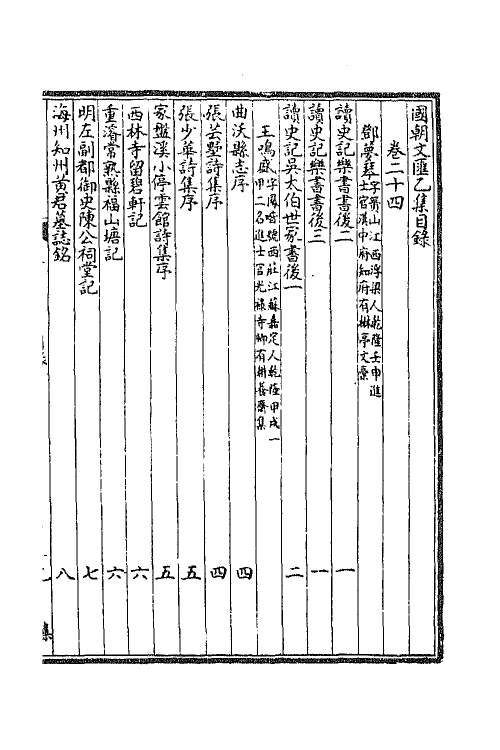 國朝文匯乙集目錄
卷二十四
鄧夢琴字箕山江西浮梁人乾隆壬申進士官漢中府知府有楙亭文稾
讀史記樂書書後二 一
讀史記樂書書後三 一
讀史記吳太伯世家書後一 二
王鳴盛字鳳喈號西莊江蘇嘉定人乾隆甲戌一甲二名進士官光祿寺卿有耕養齋集
曲沃縣志序 四
張芸墅詩集序 四
張少華詩集序 五
家盤溪小停雲館詩集序 五
西林寺留碧軒記 六
重濬常熟縣福山塘記 六
明左副都御史陳公祠堂記 七
海州知州黃君墓誌銘 八
集